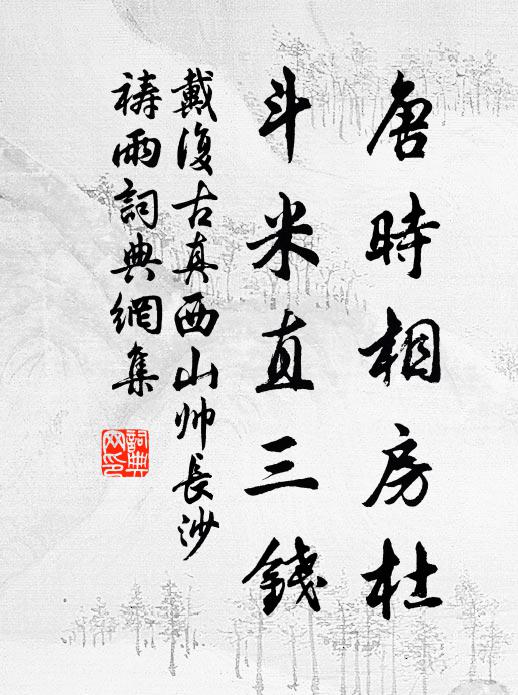 唐時相房杜
斗米直三錢
戴復古真西山帅長沙
祷雨詞典網集
詞典网印